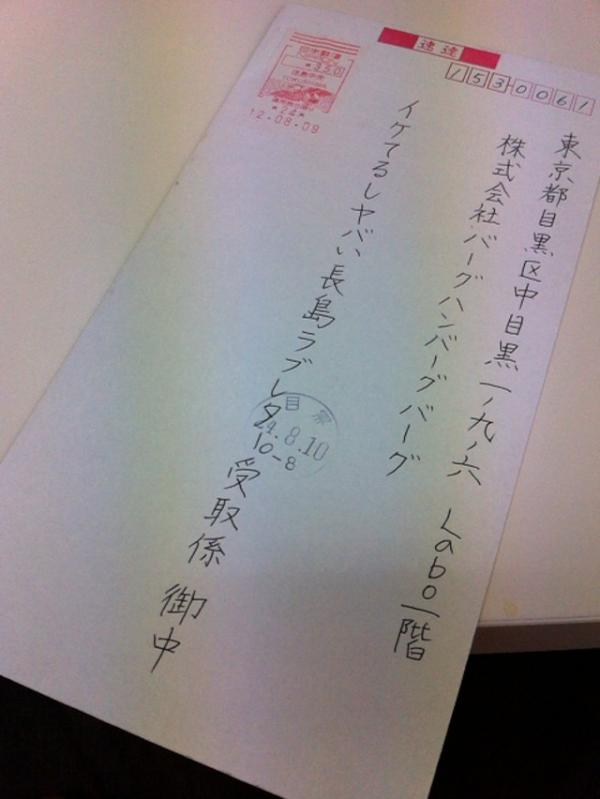 速達
1530061
東京都目黒区中目黒一ノ九ノ六 Labo一階
株式会社バーグハンバーグバーグ
イケてるしヤバい長島ラブレタ 受取係 御中
日本郵便
350
12-08-09
目黒
24.8.10
10-8